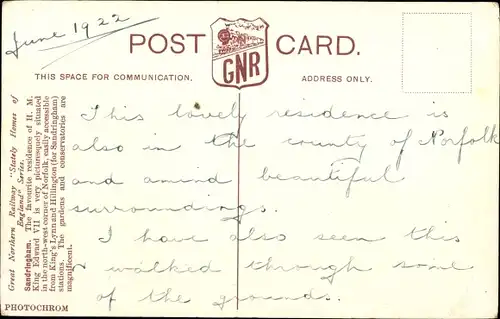 June 1922
POST CARD.
GNR
THIS SPACE FOR COMMUNICATION.
ADDRESS ONLY.
Great Northern Railway "Stately Homes of
England" Series.
Sandringham. The favourite residence of H. M.
King Edward VII is very picturesquely situated
in the north-west corner of Norfolk, easily accessible
from King's Lynn and Hillington (for Sandringham)
stations. The gardens and conservatories are
magnificent.
PHOTOCHROM
This lovely residence is
also in the county of Norfolk
and amid beautiful
surroundings.
I have also seen this
& walked through some
of the grounds.